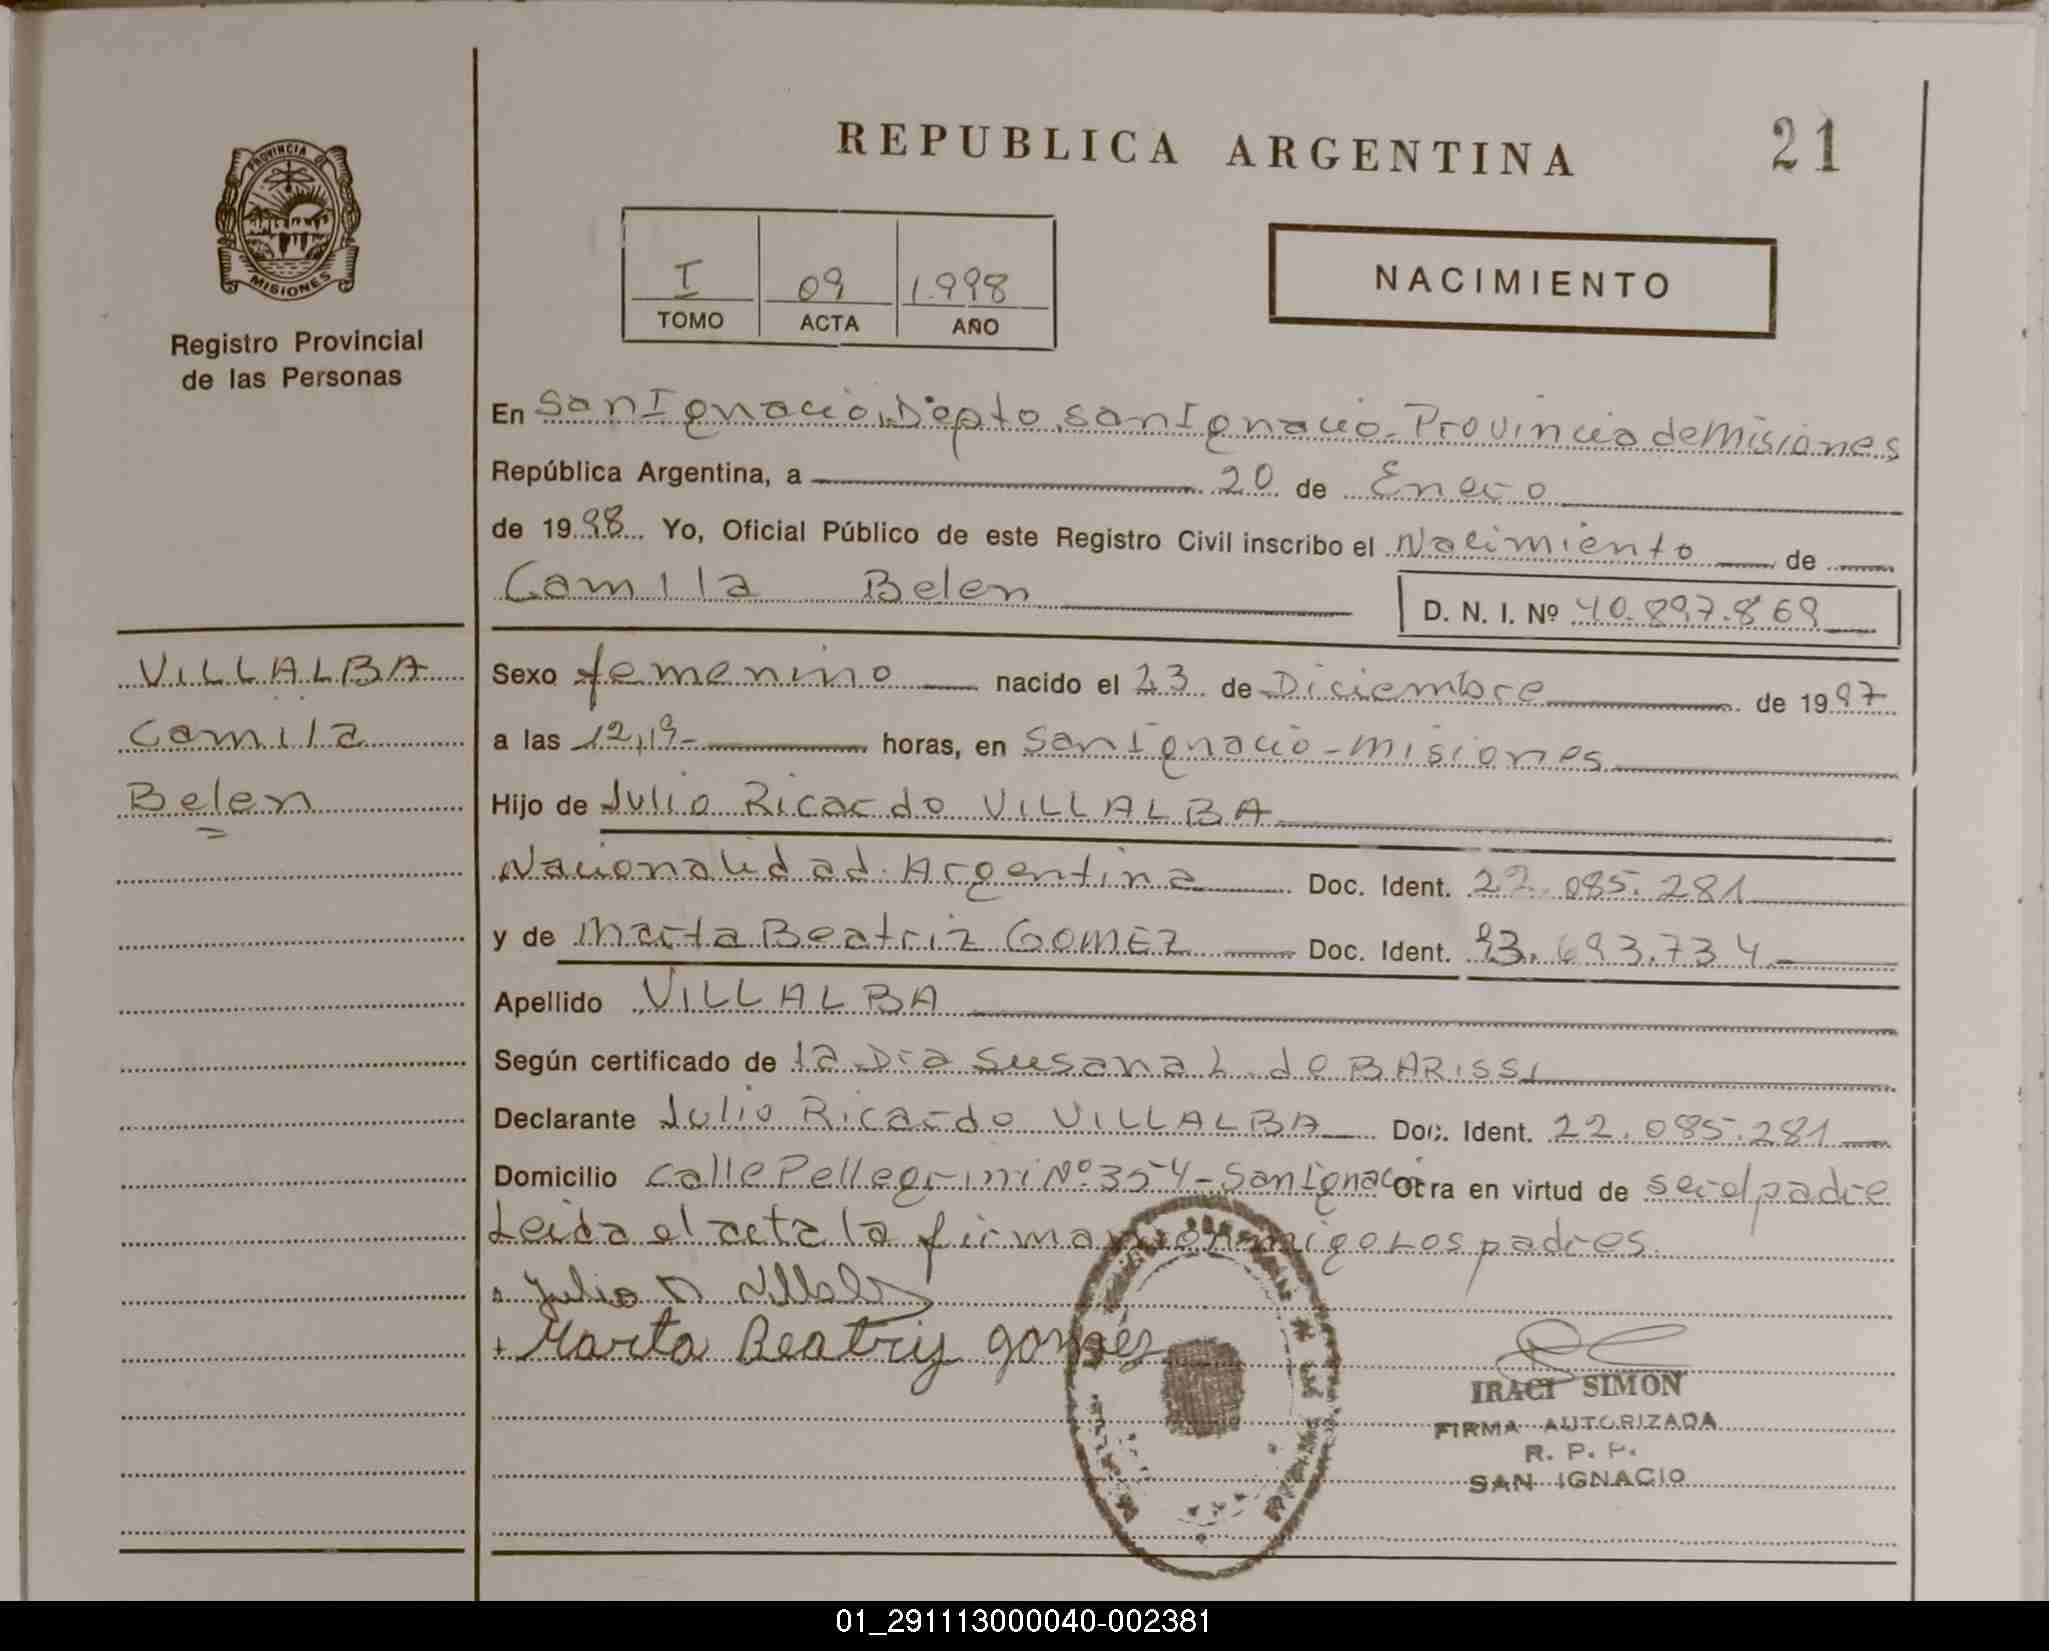 REPUBLICA ARGENTINA
21
PROVINCIA DE
MISIONES
Registro Provincial
de las Personas
I 09 1.998
TOMO ACTA AÑO
NACIMIENTO
En San Ignacio, Depto. San Ignacio - Provincia de Misiones
República Argentina, a 20 de Enero
de 1998. Yo, Oficial Público de este Registro Civil inscribo el Nacimiento de
Camila Belen
D. N. I. Nº 40.897.869
VILLALBA
Camila
Belen
Sexo femenino nacido el 23 de Diciembre de 1997
a las 12,19- horas, en San Ignacio - Misiones
Hijo de Julio Ricardo VILLALBA
Nacionalidad Argentina Doc. Ident. 22.085.281
y de Marta Beatriz GOMEZ Doc. Ident. 93.693.734
Apellido VILLALBA
Según certificado de la Dra Susana L. de BARISSI
Declarante Julio Ricardo VILLALBA Doc. Ident. 22.085.281
Domicilio calle Pellegrini Nº 354 - San Ignacio Otra en virtud de ser el padre
Leida el acta la firman conmigo Los padres.
Julio R Villalba
+ Marta Beatriz gomez
IRACI SIMON
FIRMA AUTORIZADA
R. P. P.
SAN IGNACIO
01_291113000040-002381